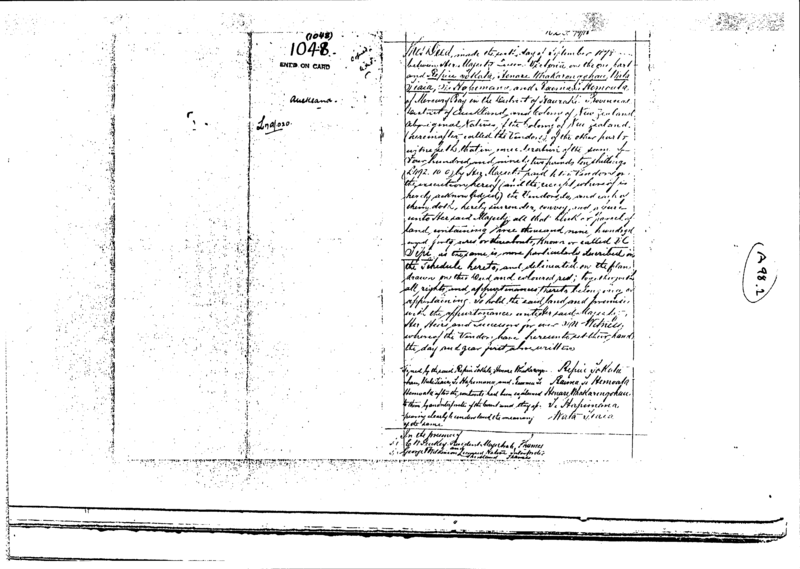 (1048)
1048
ENT'D ON CARD
Auckland.
This Deed, made the tenth day of September 1878
between Her Majesty Queen Victoria on the one part
and Repiri Te Kota, Henare Whakarongohau, Wata
Tiaia, Te Hapimana, and Raima Te Hemoata
of Mercury Bay in the District of Hauraki, Provincial
District of Auckland, and Colony of New Zealand
Aboriginal Natives of the Colony of New Zealand
(hereinafter called the Vendors) of the other part
witnesseth, that in consideration of the sum of
Four hundred and ninety two pounds ten shillings
(£492. 10. 0) by Her Majesty paid to the Vendors on
the execution hereof (and the receipt whereof is
hereby acknowledged) the Vendors do, and each of
them doth, hereby surrender, convey, and assure
unto Her said Majesty all that block or parcel of
land, containing thousand, nine hundred
and forty acres or thereabouts, known or called
as the same is more particularly described in
the Schedule hereto, and delineated on the plan
drawn on this Deed and coloured red; together with
all rights, and appurtenances, thereto belonging or
appertaining. To hold the said land and premises
with the appurtenances unto Her said Majesty
Her Heirs and Successors for ever. In Witness
whereof the Vendors have hereunto set their hands
the day and year first above written
Signed by the said Repiri Te Kota, Henare Whakarongo-
hau, Wata Tiaia, Te Hapimana, and Raima Te
Hemoata after the contents had been explained
to them by an interpreter of the Court and they ap-
pearing clearly to understand the meaning
of the same
Repiri Te Kota
Raima Te Hemoata
Henare Whakarongohau
Te Hapimana
Wata Tiaia
In the presence of
Resident Magistrate, Thames
and
George Wilkinson Licensed Native Interpreter
Shortland Thames
(A 98.2)